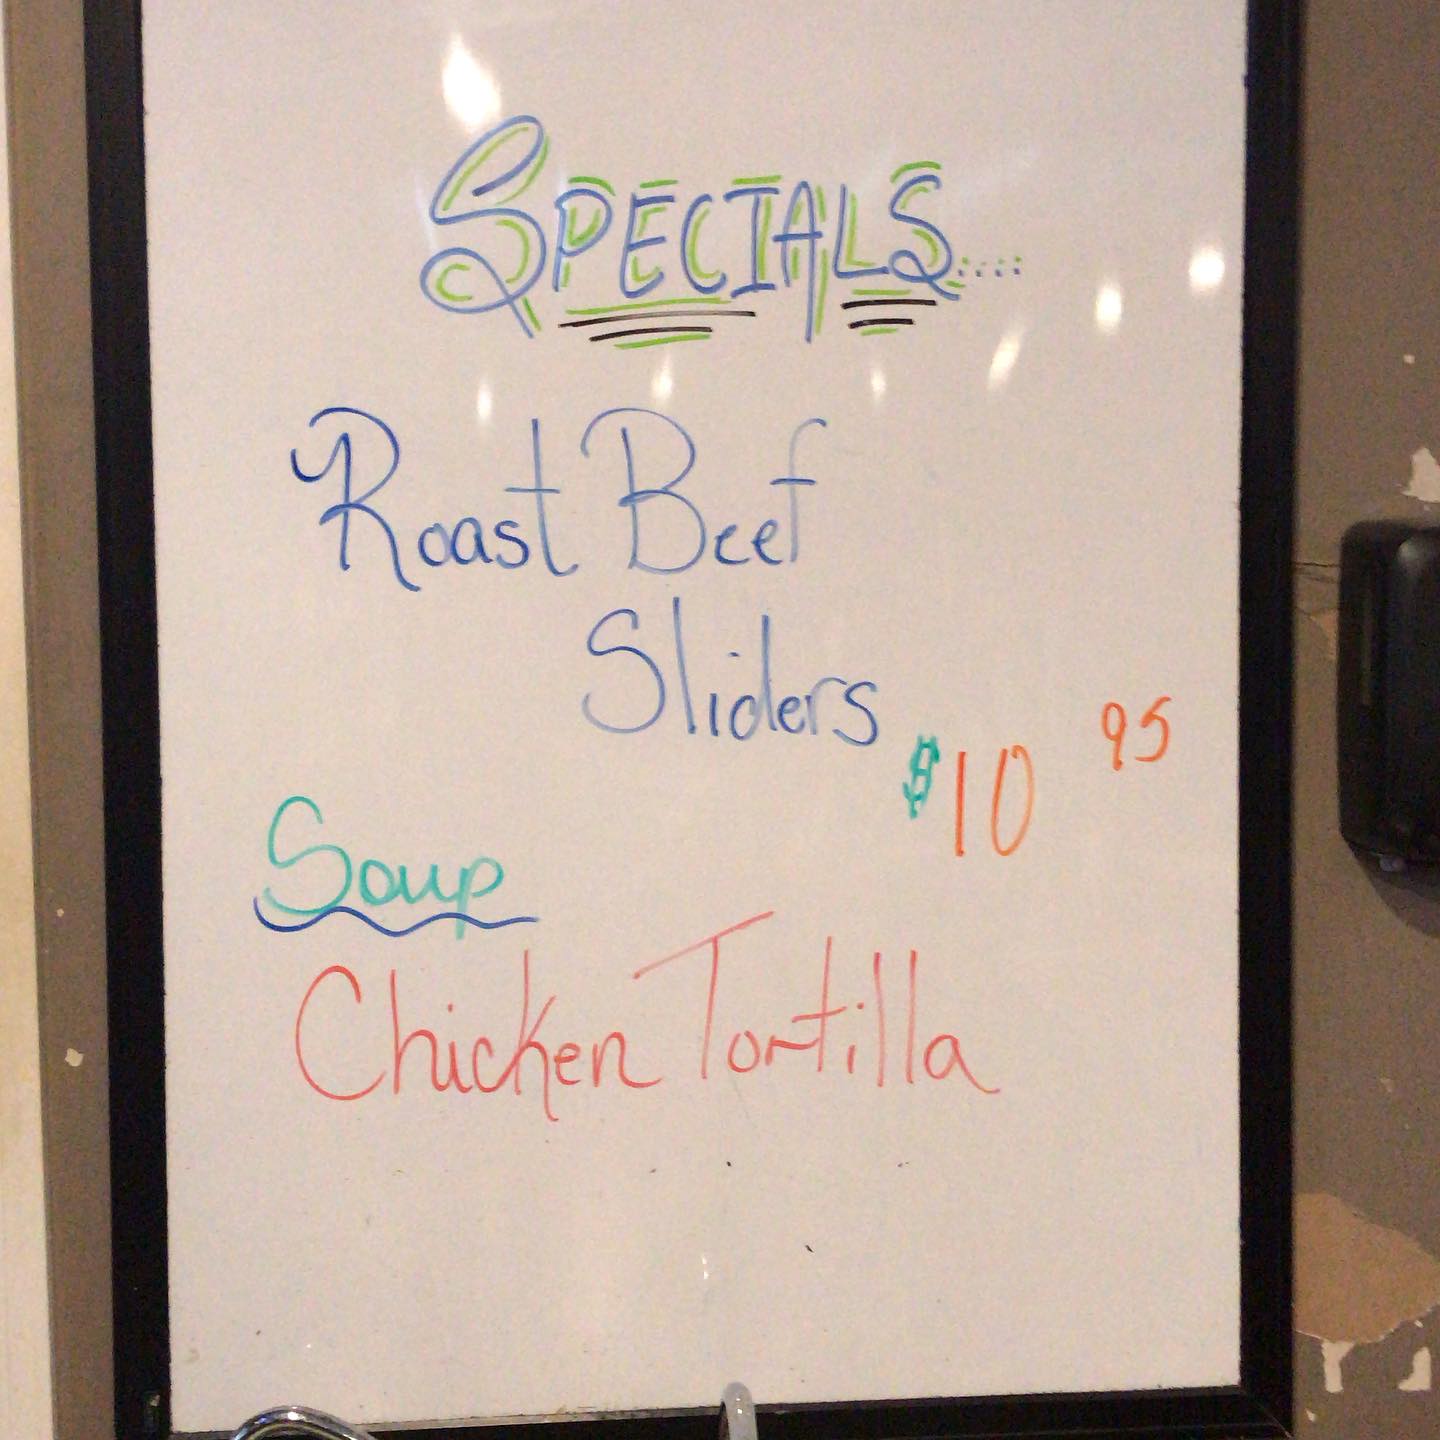 SPECIALS....
Roast Beef
Sliders
$10 95
Soup
Chicken Tortilla